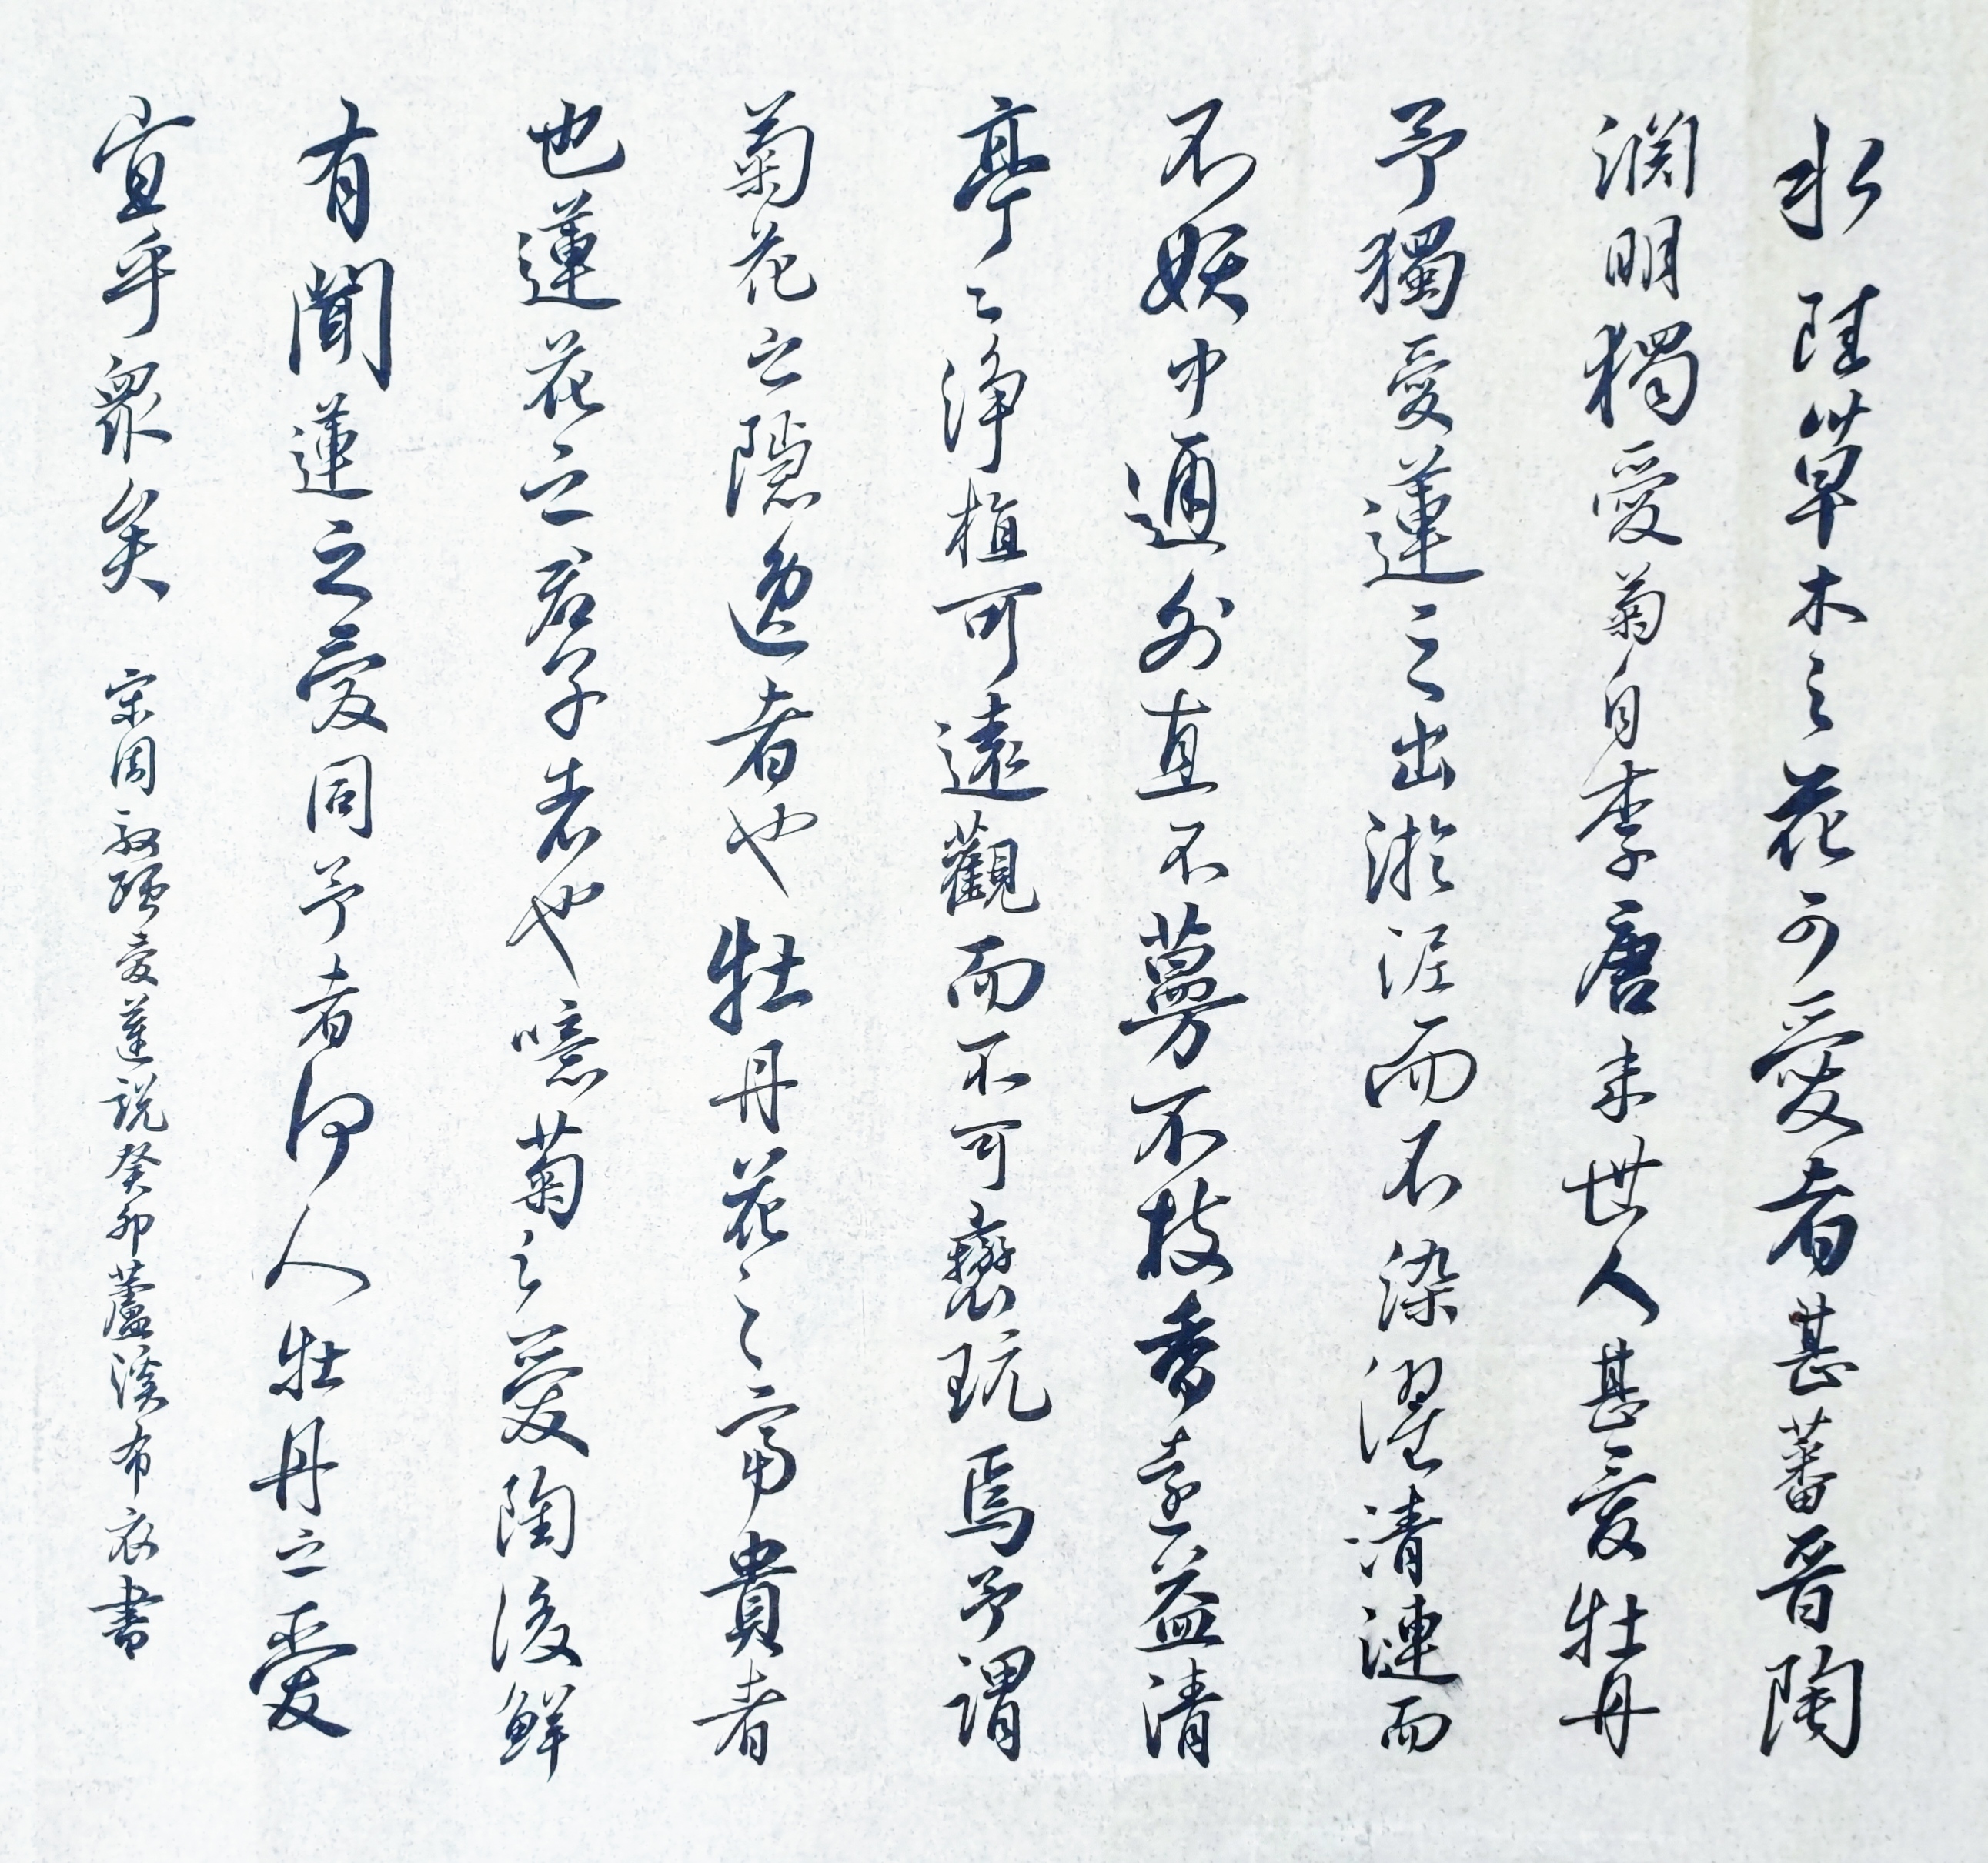 水陸草木之花可愛者甚蕃晉陶
淵明獨愛菊自李唐来世人甚愛牡丹
予獨愛蓮之出淤泥而不染濯清漣而
不妖中通外直不蔓不枝香遠益清
亭亭淨植可遠觀而不可褻玩焉予謂
菊花之隱逸者也牡丹花之富貴者
也蓮花之君子者也噫菊之愛陶後鮮
有聞蓮之愛同予者何人牡丹之愛
宜乎眾矣 宋周敦頤愛蓮說癸卯蘆溪布衣書